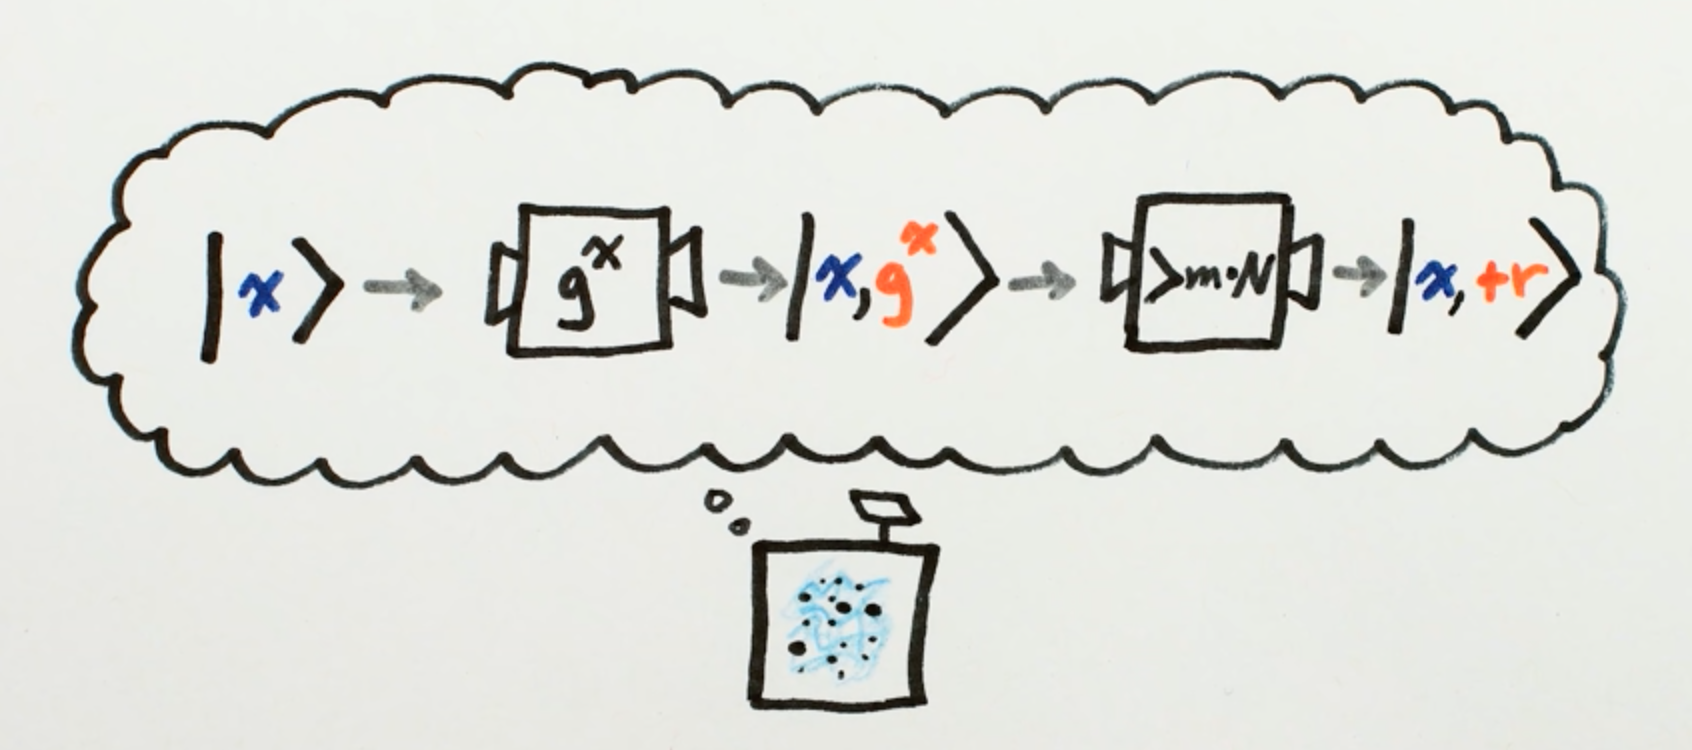 |x⟩ → g^x → |x, g^x⟩ → >m·N → |x, +r⟩